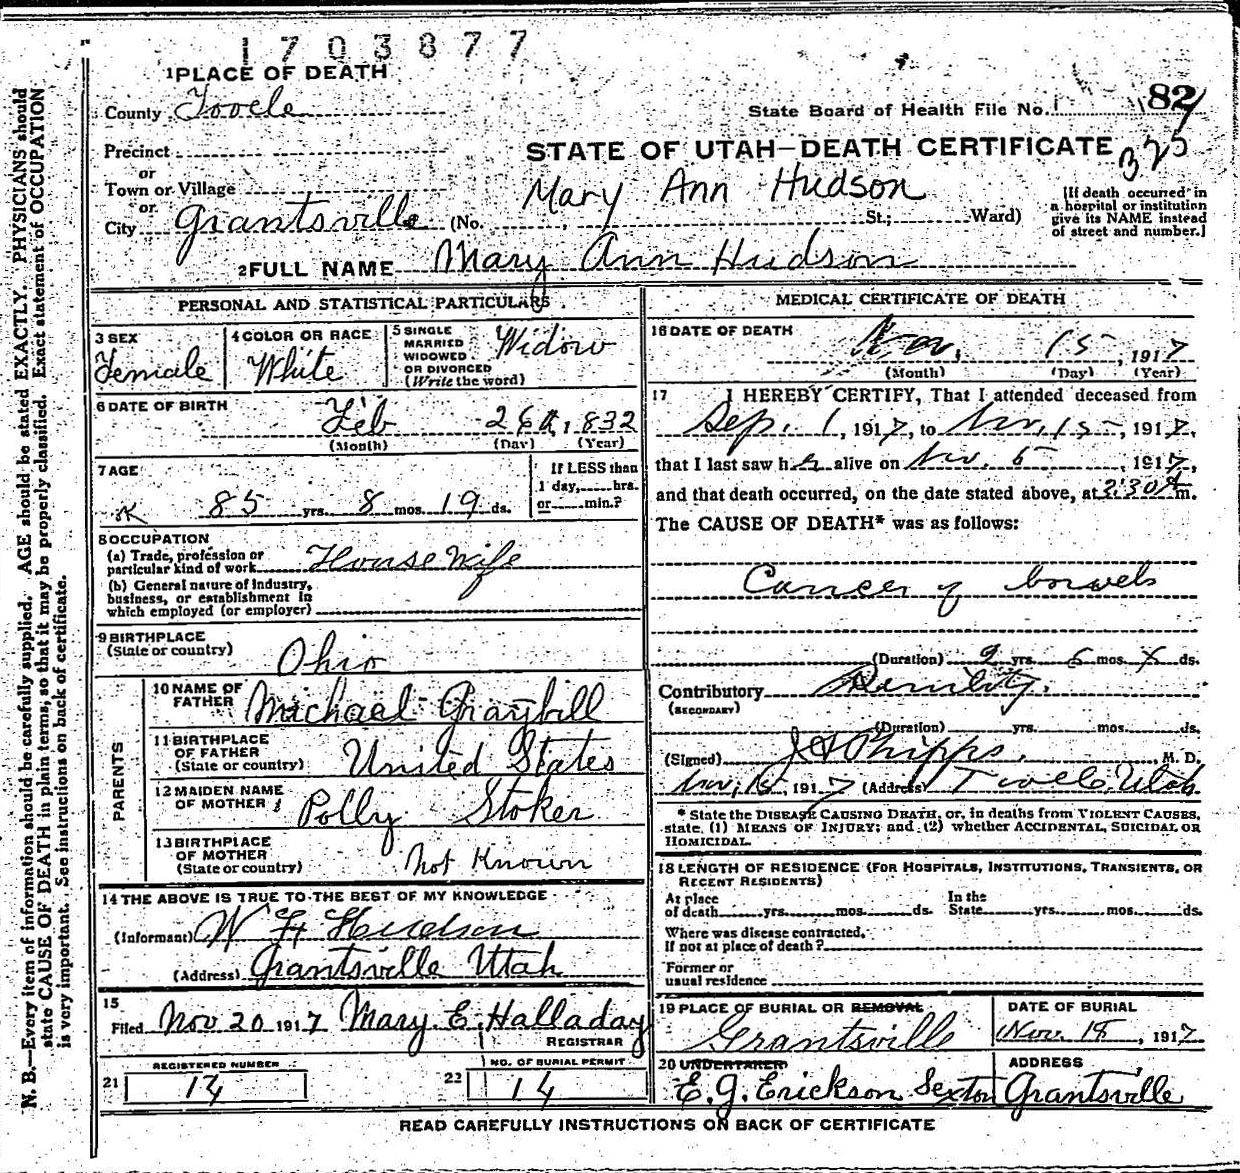 1703877
1 PLACE OF DEATH
County Tooele
State Board of Health File No. 82
Precinct
STATE OF UTAH—DEATH CERTIFICATE 325
or
Town or Village
Mary Ann Hudson
or
City Grantsville (No. St.; Ward)
[If death occurred in
a hospital or institution
give its NAME instead
of street and number.]
2 FULL NAME Mary Ann Hudson
PERSONAL AND STATISTICAL PARTICULARS
3 SEX
Female
4 COLOR OR RACE
White
5 SINGLE
MARRIED
WIDOWED
OR DIVORCED
(Write the word)
Widow
6 DATE OF BIRTH
Feb 26th, 1832
(Month) (Day) (Year)
7 AGE
85 yrs. 8 mos. 19 ds.
If LESS than
1 day, hrs.
or min.?
8 OCCUPATION
(a) Trade, profession or
particular kind of work House Wife
(b) General nature of Industry,
business, or establishment in
which employed (or employer)
9 BIRTHPLACE
(State or country)
Ohio
PARENTS
10 NAME OF
FATHER
Michael Graybill
11 BIRTHPLACE
OF FATHER
(State or country)
United States
12 MAIDEN NAME
OF MOTHER
Polly Stoker
13 BIRTHPLACE
OF MOTHER
(State or country)
Not Known
14 THE ABOVE IS TRUE TO THE BEST OF MY KNOWLEDGE
(Informant) W H Hudson
(Address) Grantsville Utah
15
Filed Nov 20 1917 Mary E. Halladay
REGISTRAR
REGISTERED NUMBER
21 14
NO. OF BURIAL PERMIT
22 14
MEDICAL CERTIFICATE OF DEATH
16 DATE OF DEATH
Nov. 15, 1917
(Month) (Day) (Year)
17 I HEREBY CERTIFY, That I attended deceased from
Sep. 1, 1917, to Nov. 15, 1917,
that I last saw her alive on Nov. 5, 1917,
and that death occurred, on the date stated above, at 2:30 A m.
The CAUSE OF DEATH* was as follows:
Cancer of bowels
(Duration) 2 yrs. 6 mos. X ds.
Contributory Senility.
(SECONDARY)
(Duration) yrs. mos. ds.
(Signed) J A Phipps, M. D.
Nov, 15, 1917 (Address) Tooele, Utah
* State the DISEASE CAUSING DEATH, or, in deaths from VIOLENT CAUSES,
state (1) MEANS OF INJURY; and (2) whether ACCIDENTAL, SUICIDAL OR
HOMICIDAL.
18 LENGTH OF RESIDENCE (FOR HOSPITALS, INSTITUTIONS, TRANSIENTS, OR
RECENT RESIDENTS)
At place
of death yrs. mos. ds.
In the
State yrs. mos. ds.
Where was disease contracted,
If not at place of death?
Former or
usual residence
19 PLACE OF BURIAL OR REMOVAL
Grantsville
DATE OF BURIAL
Nov. 18, 1917
20 UNDERTAKER
E. G. Erickson Sexton
ADDRESS
Grantsville
READ CAREFULLY INSTRUCTIONS ON BACK OF CERTIFICATE
N. B.—Every item of information should be carefully supplied. AGE should be stated EXACTLY. PHYSICIANS should
state CAUSE OF DEATH in plain terms, so that it may be properly classified. Exact statement of OCCUPATION
is very important. See instructions on back of certificate.